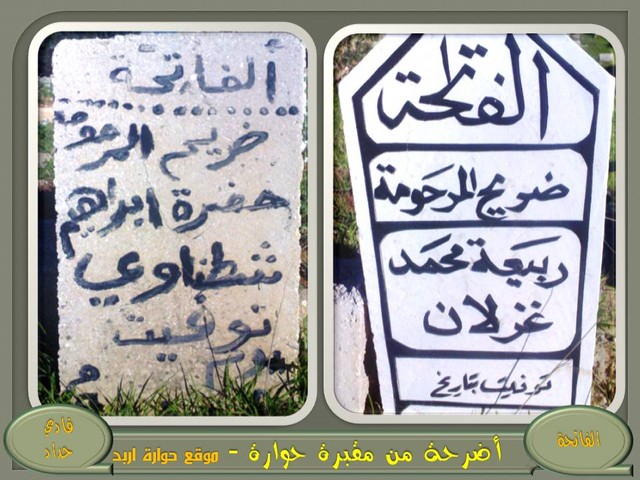 الفاتحة
ضريح المرحومة
ربيعة محمد
غزلان
توفيت بتاريخ
الفاتحة
ضريح المرحومة
خضرة ابراهيم
شطناوي
توفيت
الفاتحة
أضرحة من مقبرة حوارة - موقع حوارة اربد
فادي
حداد